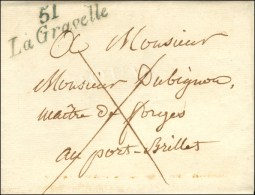 51
La Gravelle
A Monsieur
Monsieur Dubignon,
maitre de forges
au port-Brillet